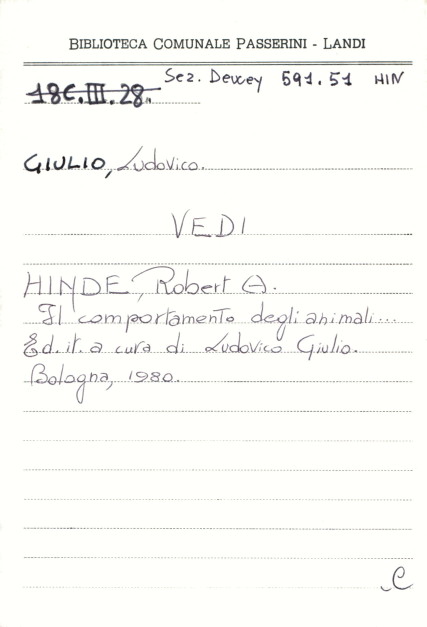 BIBLIOTECA COMUNALE PASSERINI - LANDI
18C.III.28. Sez. Dewey 591.51 HIN
GIULIO, Ludovico.
VEDI
HINDE, Robert A.
Il comportamento degli animali...
Ed. it. a cura di Ludovico Giulio.
Bologna, 1980.
C